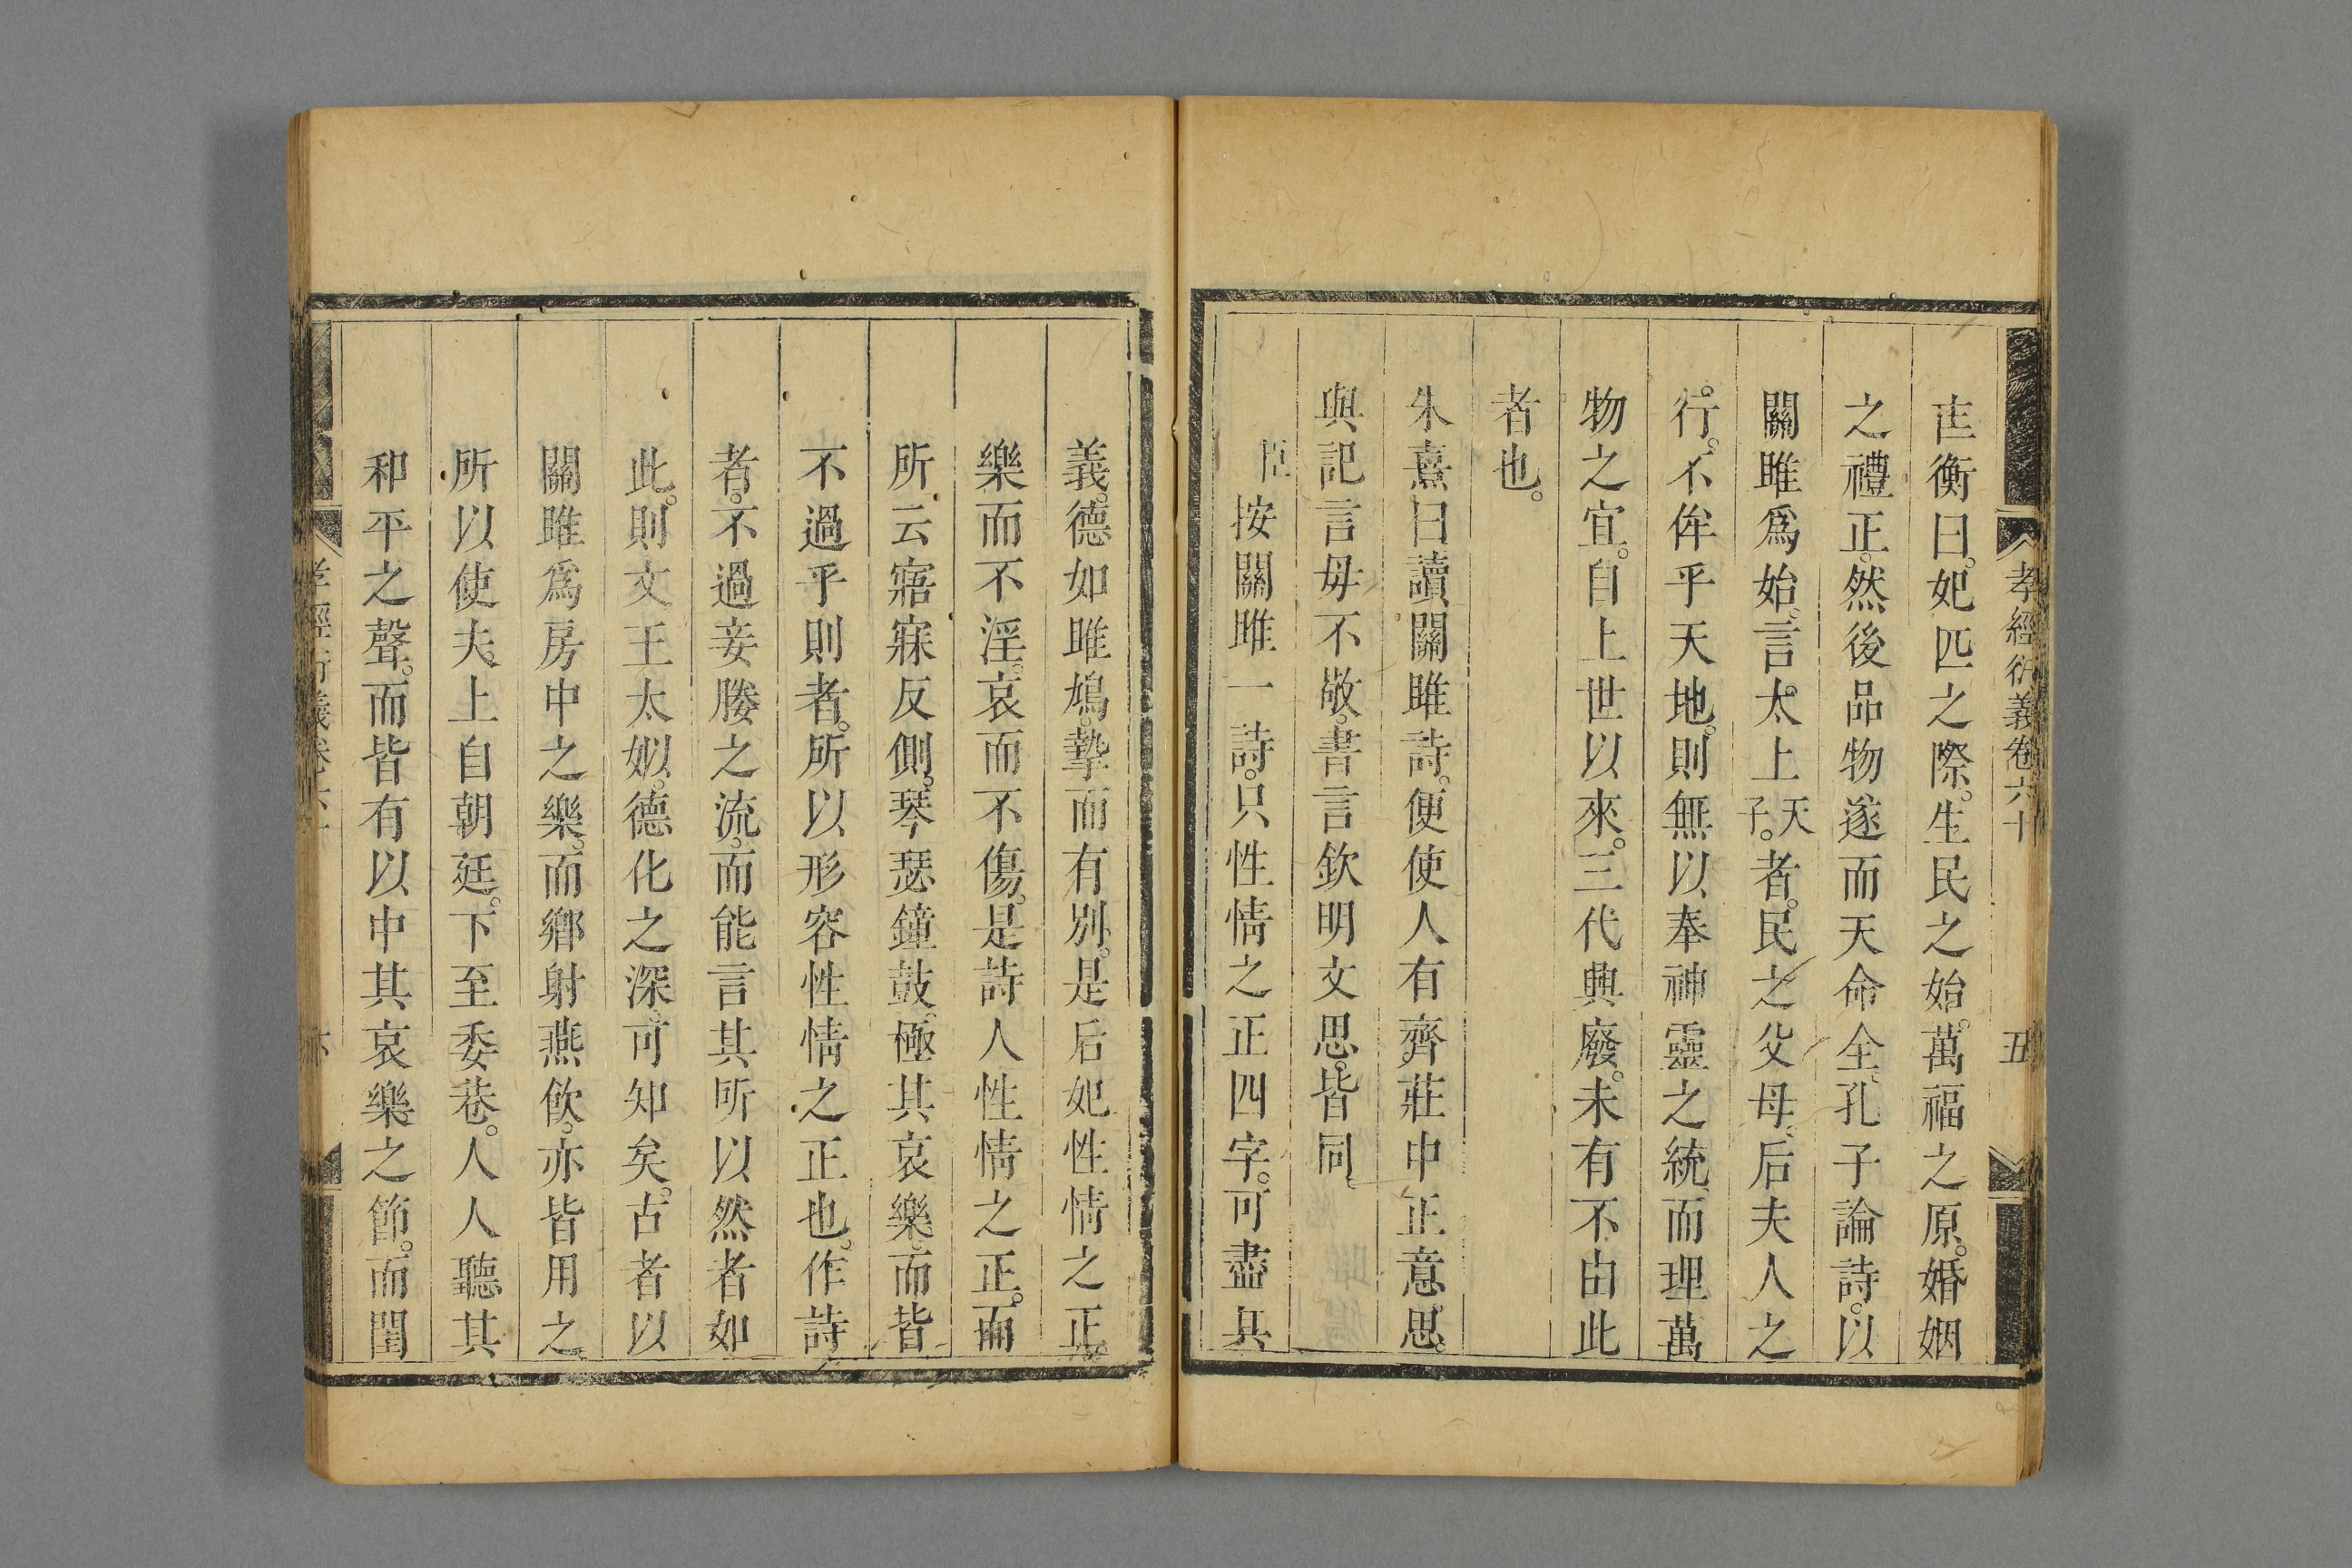 孝經衍義卷六十
五
匡衡曰。妃匹之際。生民之始。萬福之原。婚姻
之禮正。然後品物遂而天命全。孔子論詩。以
關雎爲始。言太上天子。者。民之父母。后夫人之
行。不侔乎天地。則無以奉神靈之統。而理萬
物之宜。自上世以來。三代興廢。未有不由此
者也。
朱熹曰讀關雎詩。便使人有齊莊中正意思。
與記言毋不敬。書言欽明文思。皆同。
臣按關雎一詩。只性情之正四字。可盡其
義。德如雎鳩。摯而有別。是后妃性情之正。
樂而不淫。哀而不傷。是詩人性情之正。而
所云寤寐反側。琴瑟鐘鼓。極其哀樂。而皆
不過乎則者。所以形容性情之正也。作詩
者。不過妾媵之流。而能言其所以然者如
此。則文王太姒。德化之深。可知矣。古者以
關雎爲房中之樂。而鄉射燕飲。亦皆用之
所以使夫上自朝廷。下至委巷。人人聽其
和平之聲。而皆有以中其哀樂之節。而閨
孝經衍義卷六十
六